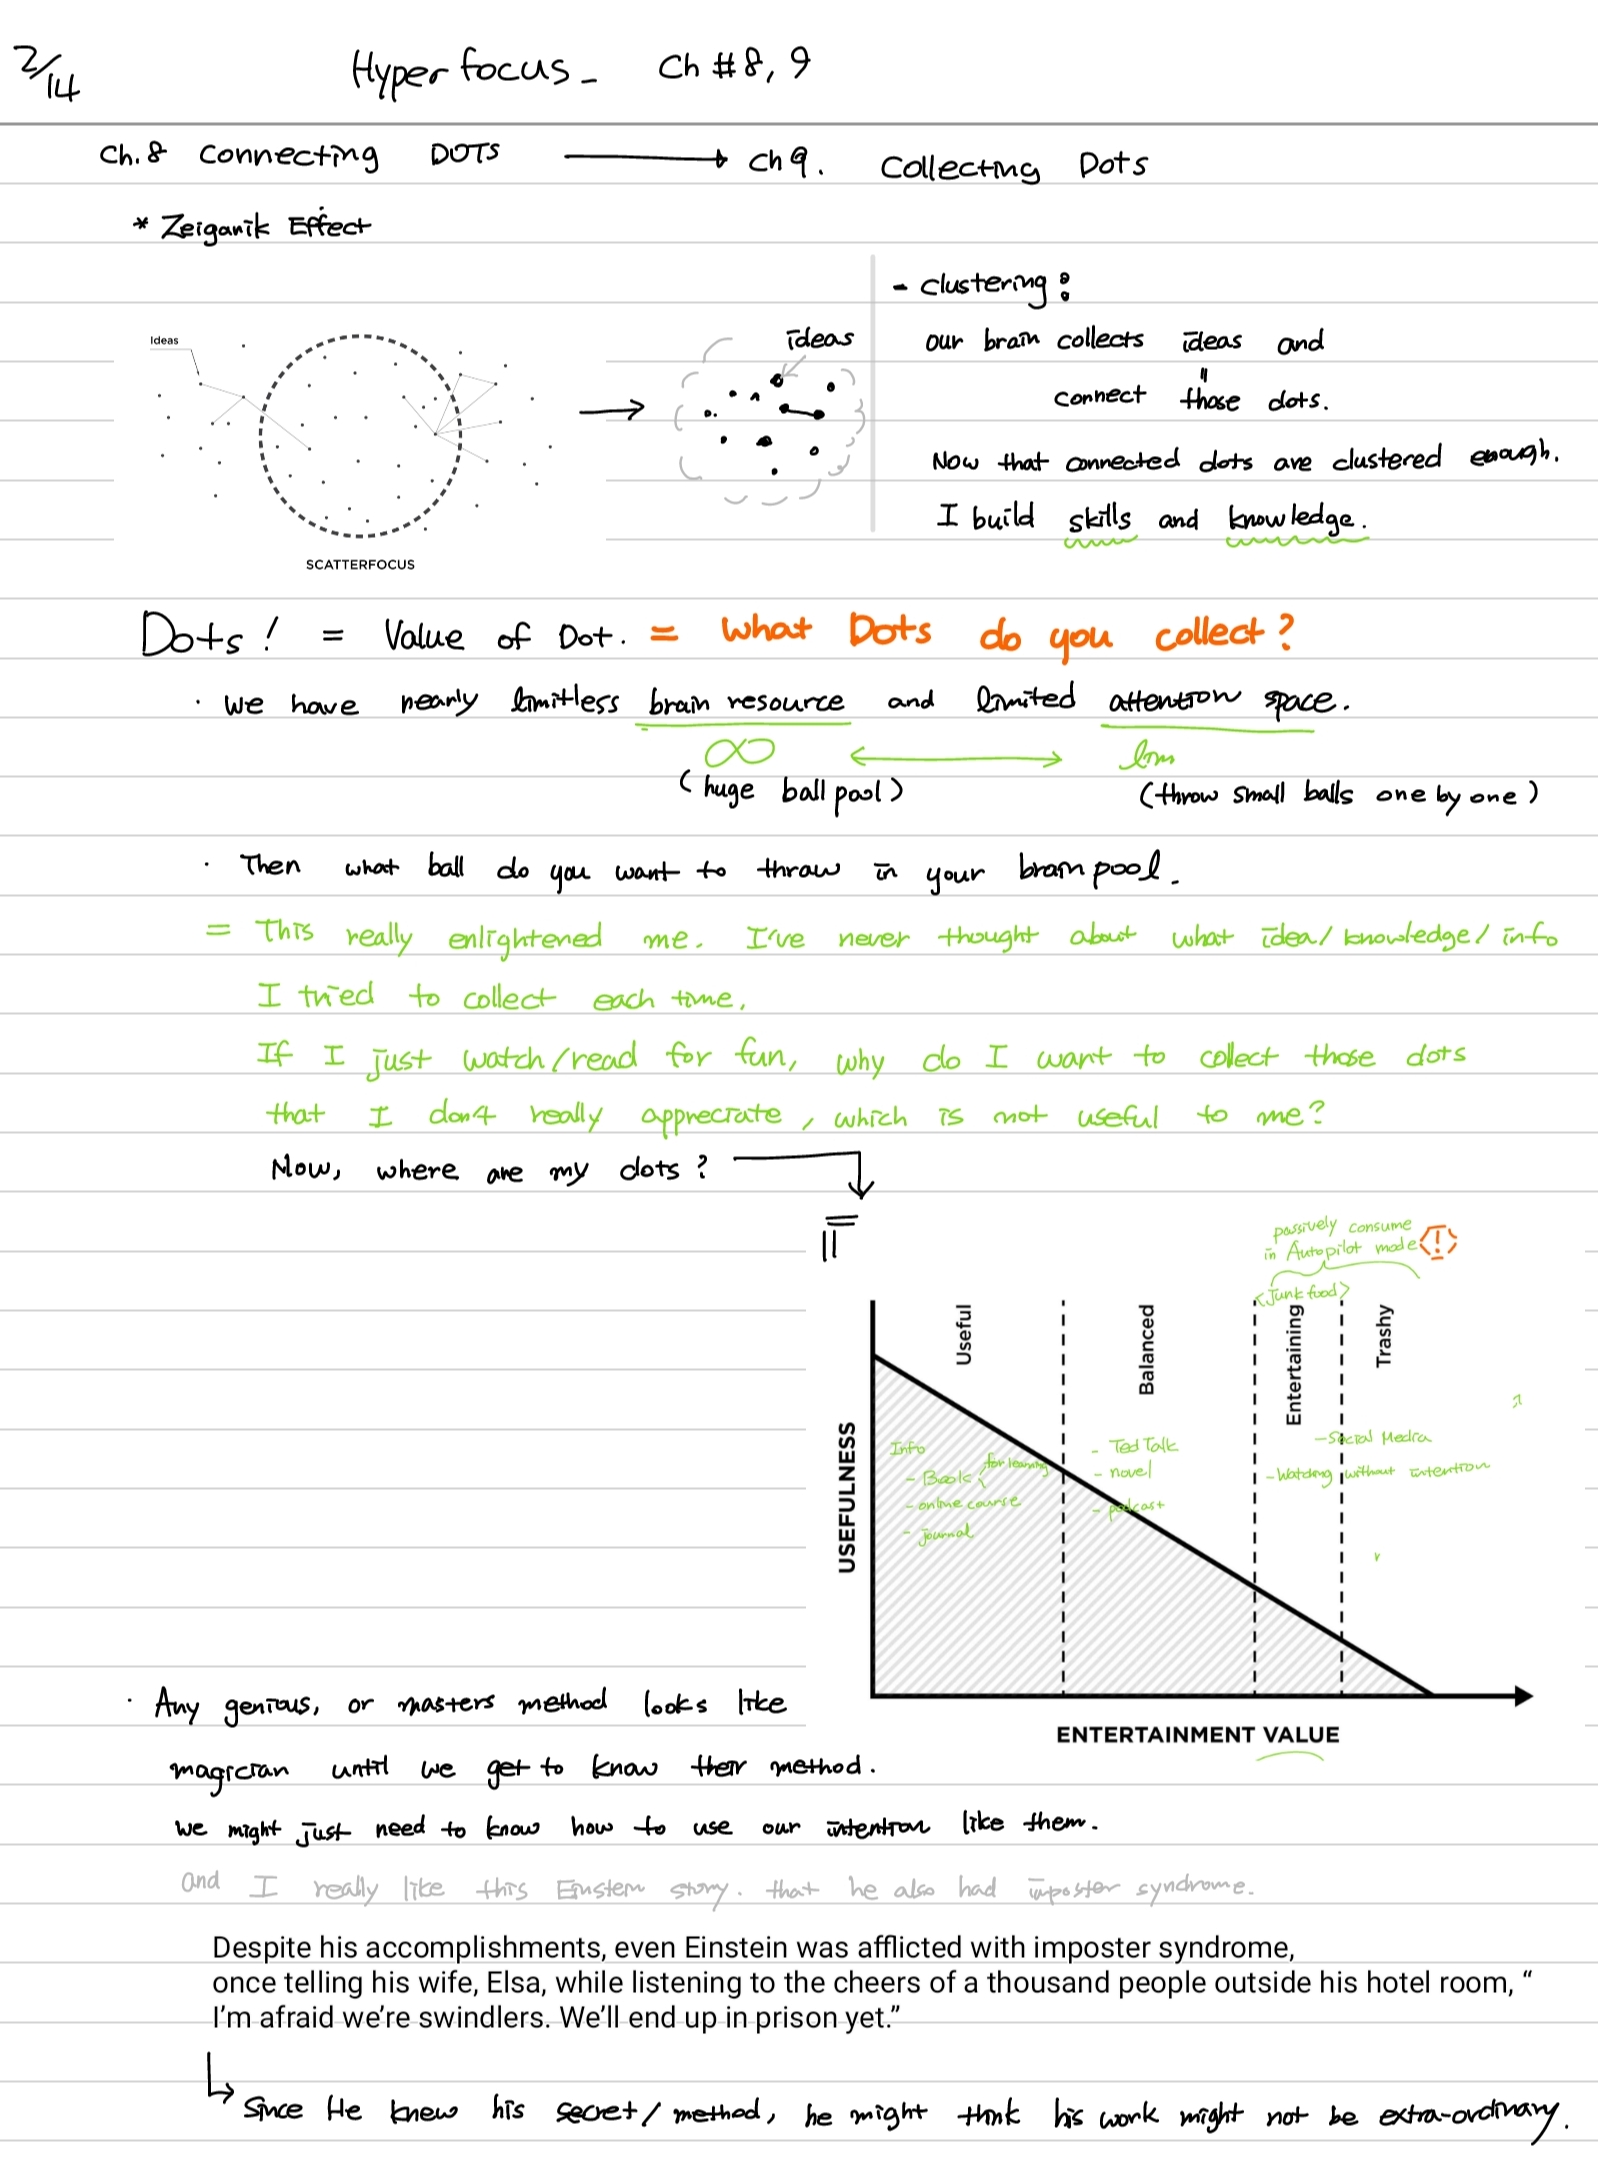 2/14
Hyper focus - Ch #8, 9
Ch.8 Connecting DOTS → Ch 9. Collecting Dots
* Zeiganik Effect
Ideas
SCATTERFOCUS
ideas
- clustering:
our brain collects ideas and
connect those dots.
Now that connected dots are clustered enough.
I build skills and knowledge.
Dots! = Value of Dot. = What Dots do you collect?
· we have nearly limitless brain resource and limited attention space.
∞ ↔ lim
(huge ball pool) (throw small balls one by one)
· Then what ball do you want to thraw in your brain pool.
= This really enlightened me. I've never thought about what idea/knowledge/info
I tried to collect each time.
If I just watch/read for fun, why do I want to collect those dots
that I don't really appreciate, which is not useful to me?
Now, where are my dots?
passively consume
in Autopilot mode
!
<Junkfood>
Useful
Balanced
Entertaining
Trashy
USEFULNESS
Info
- Book for learning
- online course
- journal
- Ted Talk
- novel
- podcast
- Social Media
- Watching without intention
ENTERTAINMENT VALUE
· Any genious, or masters method looks like
magician until we get to know their method.
we might just need to know how to use our intention like them.
and I really like this Einstein story. that he also had imposter syndrome.
Despite his accomplishments, even Einstein was afflicted with imposter syndrome,
once telling his wife, Elsa, while listening to the cheers of a thousand people outside his hotel room, “
I’m afraid we’re swindlers. We’ll end up in prison yet.”
Since He knew his secret/method, he might think his work might not be extra-ordinary.